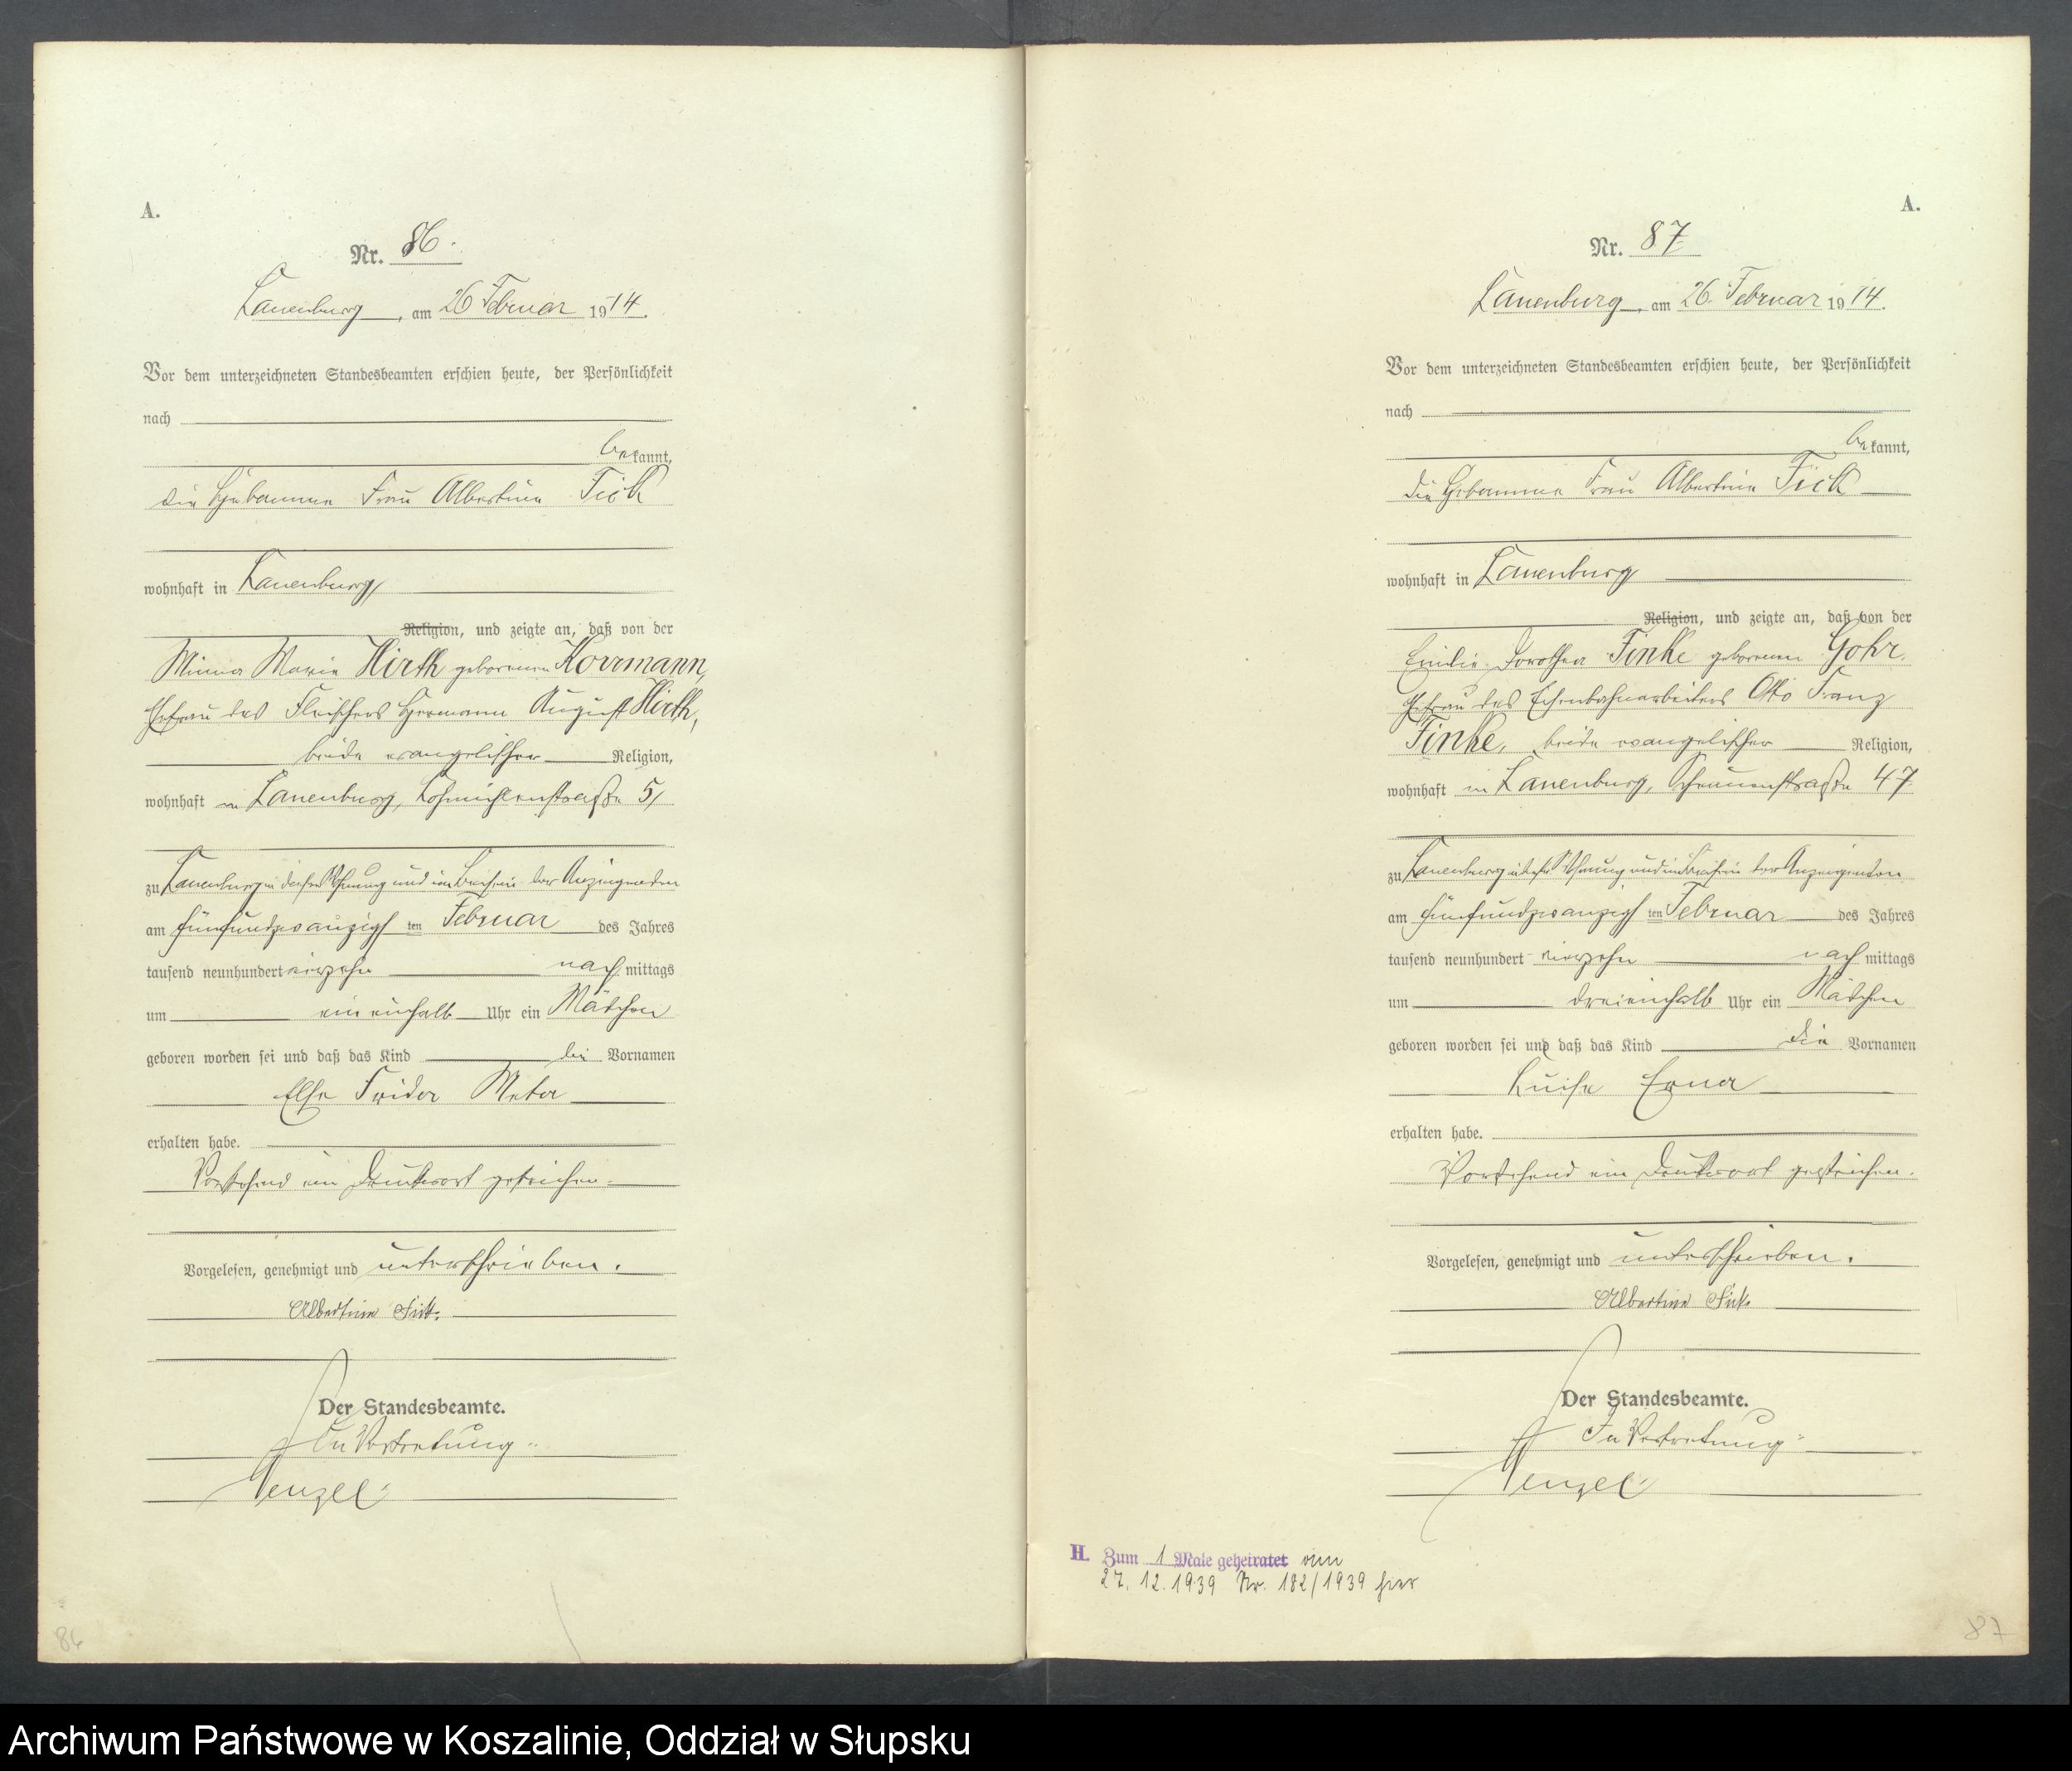 A.
Nr. 86.
Lauenburg, am 26 Februar 1914.
Vor dem unterzeichneten Standesbeamten erschien heute, der Persönlichkeit
nach
bekannt,
die Hebamme Frau Albertine Fick
wohnhaft in Lauenburg
Religion, und zeigte an, daß von der
Minna Marie Hirth geborenen Korrmann,
Ehefrau des Fleischers Hermann August Hirth,
beide evangelischer Religion,
wohnhaft in Lauenburg, Lohmühlenstraße 5,
zu Lauenburg in dessen Wohnung und im Beisein der Anzeigenden
am fünfundzwanzigsten Februar des Jahres
tausend neunhundert vierzehn nachmittags
um ein einhalb Uhr ein Mädchen
geboren worden sei und daß das Kind die Vornamen
Else Frida Meta
erhalten habe.
Vorstehend ein Druckwort gestrichen.
Vorgelesen, genehmigt und unterschrieben.
Albertine Fick.
Der Standesbeamte.
In Vertretung
Wenzel
86
A.
Nr. 87
Lauenburg, am 26. Februar 1914.
Vor dem unterzeichneten Standesbeamten erschien heute, der Persönlichkeit
nach
bekannt,
die Hebamme Frau Albertine Fick
wohnhaft in Lauenburg
Religion, und zeigte an, daß von der
Emilie Dorothea Finke geborenen Gohr,
Ehefrau des Eisenbahnarbeiters Otto Franz
Finke, beide evangelischer Religion,
wohnhaft in Lauenburg, Scheunenstraße 47
zu Lauenburg in dessen Wohnung und im Beisein der Anzeigenden
am fünfundzwanzigsten Februar des Jahres
tausend neunhundert vierzehn nachmittags
um dreieinhalb Uhr ein Mädchen
geboren worden sei und daß das Kind die Vornamen
Luise Erna
erhalten habe.
Vorstehend ein Druckwort gestrichen.
Vorgelesen, genehmigt und unterschrieben.
Albertine Fick.
Der Standesbeamte.
In Vertretung
Wenzel
H. Zum 1 Male geheiratet am
27. 12. 1939 Nr. 182/1939 hier
87
Archiwum Państwowe w Koszalinie, Oddział w Słupsku